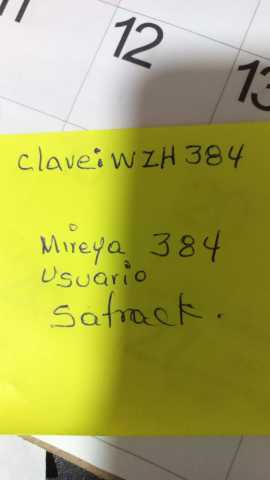 11
12
13
Clave: WZH384
Mireya 384
Usuario
Satrack.